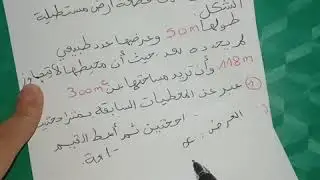 قطعة أرض مستطيلة
الشكل
طولها 50m وعرضها عدد طبيعي
لم يحدد بعد حيث أن محيطها لا يتجاوز
118m وأن تزيد مساحتها عن 300m²
① عبر عن المعطيات السابقة بمتراجحتين
العرض: x